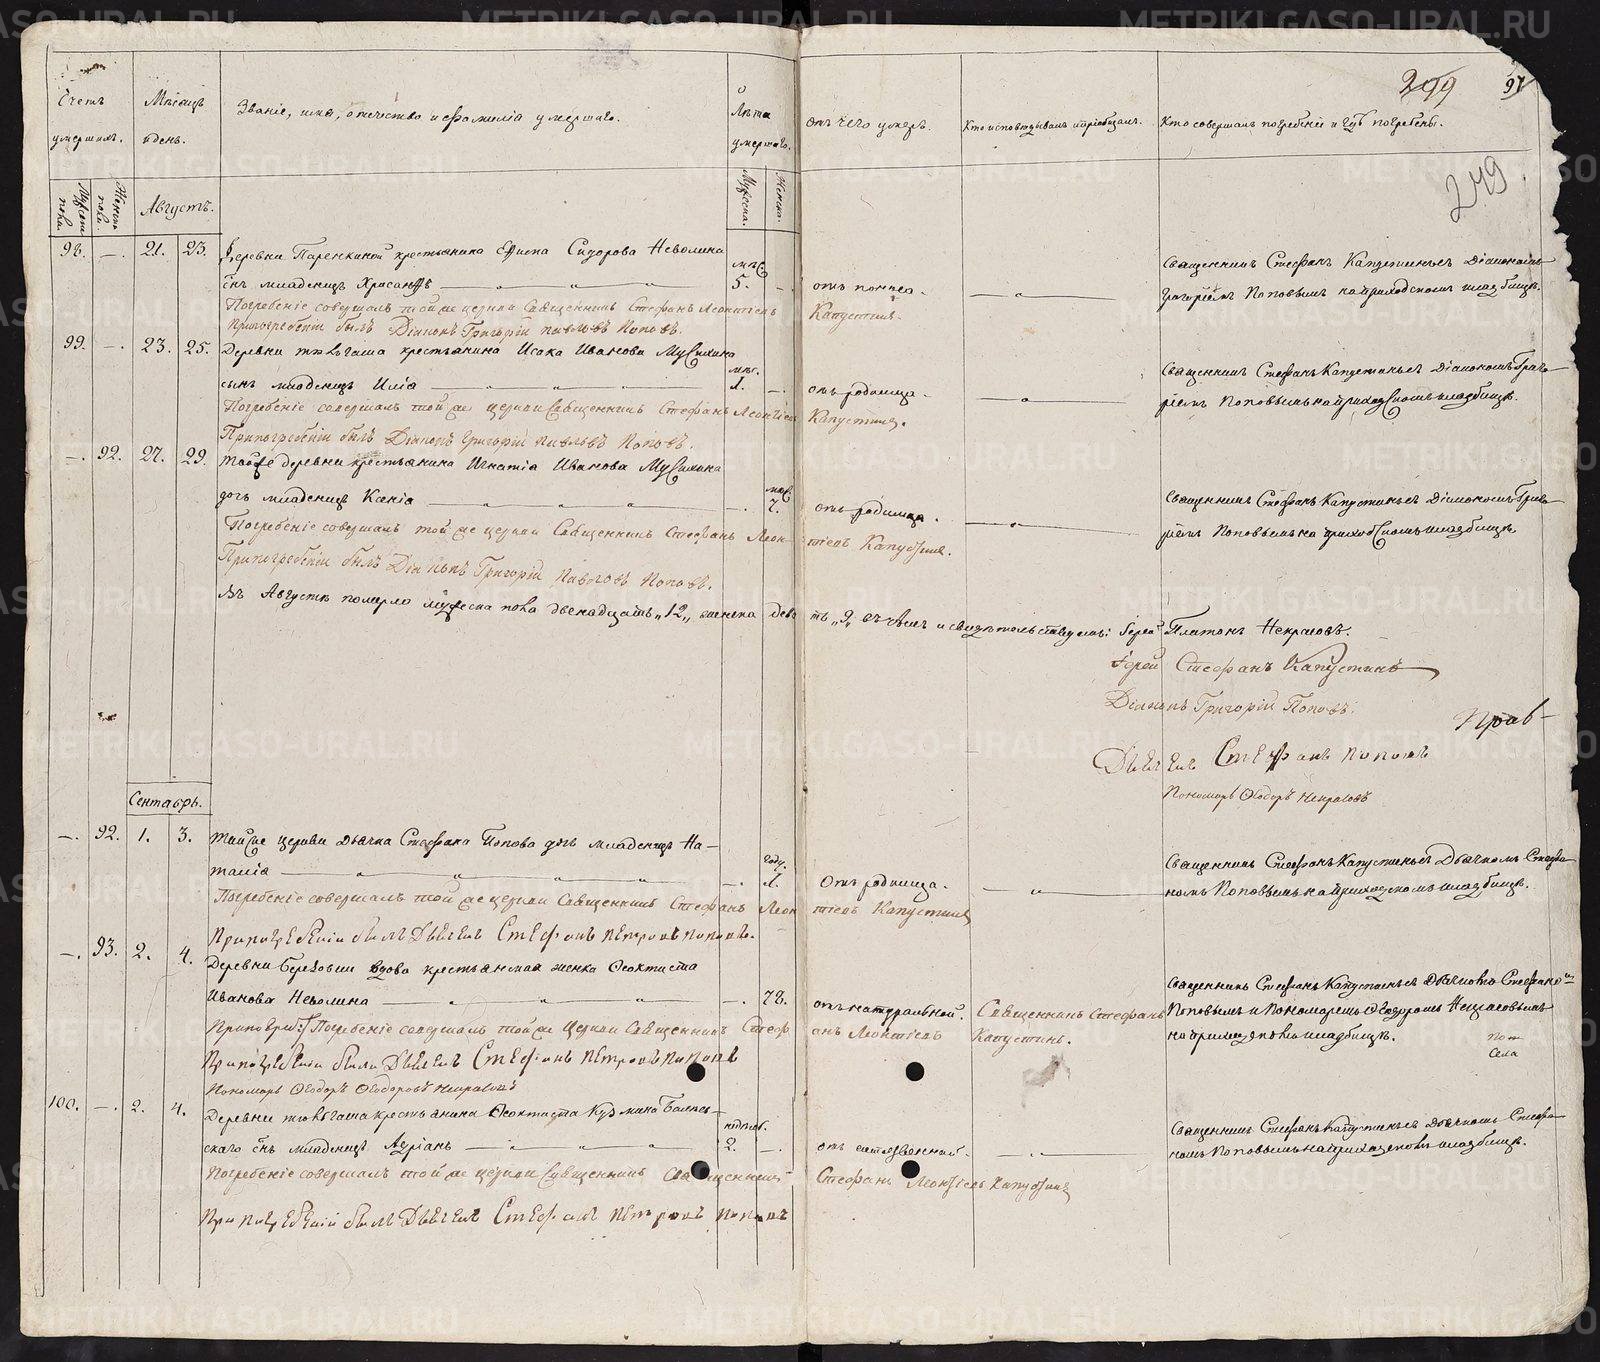 Счетъ умершихъ.
Мѣсяцъ и день.
Званіе, имя, отчество и фамилія умершаго.
Лѣта умершаго.
отъ чего умеръ.
Кто исповѣдывалъ и пріобщалъ.
Кто совершалъ погребеніе и гдѣ погребены.
299
97
249
Мужеска пола.
Женска пола.
Августъ.
Мужеска.
Женска.
98. — 21. 23. Деревни Паренкиной крестьянина Сидорова Неволина
Священникъ Стефанъ Капустинъ съ Діакономъ
снъ младенецъ Хрисанфъ — 5. — отъ поноса.
Григоріемъ Поповымъ на приходскомъ кладбищѣ.
Погребеніе совершалъ той же церкви Священникъ Стефанъ Леонтіевъ Капустинъ.
При погребеніи былъ Діаконъ Григорій Павловъ Поповъ.
99. — 23. 25. Деревни крестьянина Исака Иванова
Священникъ Стефанъ Капустинъ съ Діакономъ Григо-
сынъ младенецъ Илія — 1. — отъ родимца.
ріемъ Поповымъ на приходскомъ кладбищѣ.
Погребеніе совершалъ той же церкви Священникъ Стефанъ Леонтіевъ Капустинъ.
При погребеніи былъ Діаконъ Григорій Павловъ Поповъ.
— 92. 27. 29. Той же деревни крестьянина Игнатія Иванова
Священникъ Стефанъ Капустинъ съ Діакономъ Григо-
дочь младенецъ Ксенія — 7. отъ родимца.
ріемъ Поповымъ на приходскомъ кладбищѣ.
Погребеніе совершалъ той же церкви Священникъ Стефанъ Леонтіевъ Капустинъ.
При погребеніи былъ Діаконъ Григорій Павловъ Поповъ.
Въ Августѣ померло мужеска пола двенадцать „12„ женска девять „9„ въ чемъ и свидѣтельствуемъ: Іерей Платонъ Некрасовъ.
Іерей Стефанъ Капустинъ
Діаконъ Григорій Поповъ.
Прав-
Дьячекъ Стефанъ Поповъ
Пономарь Ѳеодоръ Некрасовъ
Сентябрь.
— 92. 1. 3. Той же церкви Дьячка Стефана Попова дочь младенецъ На-
Священникъ Стефанъ Капустинъ съ Дьячкомъ Стефа-
талія — году. 1. Отъ родимца.
номъ Поповымъ на приходскомъ кладбищѣ.
Погребеніе совершалъ той же церкви Священникъ Стефанъ Леонтіевъ Капустинъ
При погребеніи былъ Дьячекъ Стефанъ Петровъ Поповъ.
— 93. 2. 4. Деревни вдова крестьянская женка Ѳеоктиста
Священникъ Стефанъ Капустинъ съ Дьячкомъ Стефаномъ
Иванова Неволина — 72. отъ натуральной. Священникъ Стефанъ
Поповымъ и Пономаремъ Ѳеодоромъ Некрасовымъ
Погребеніе совершалъ той же Церкви Священникъ Стефанъ Леонтіевъ Капустинъ.
на приходскомъ кладбищѣ.
села
При погребеніи были Дьячекъ Стефанъ Петровъ Поповъ
Пономарь Ѳеодоръ Ѳеодоровъ Некрасовъ
100. — 2. 4. Деревни крестьянина Ѳеоктиста Кузмина
Священникъ Стефанъ Капустинъ съ Дьячкомъ Стефа-
скаго снъ младенецъ Адріанъ — 2. —
номъ Поповымъ на приходскомъ кладбищѣ.
Погребеніе совершалъ той же церкви Священникъ Священникъ Стефанъ Леонтіевъ Капустинъ
При погребеніи былъ Дьячекъ Стефанъ Петровъ Поповъ
METRIKI.GASO-URAL.RU